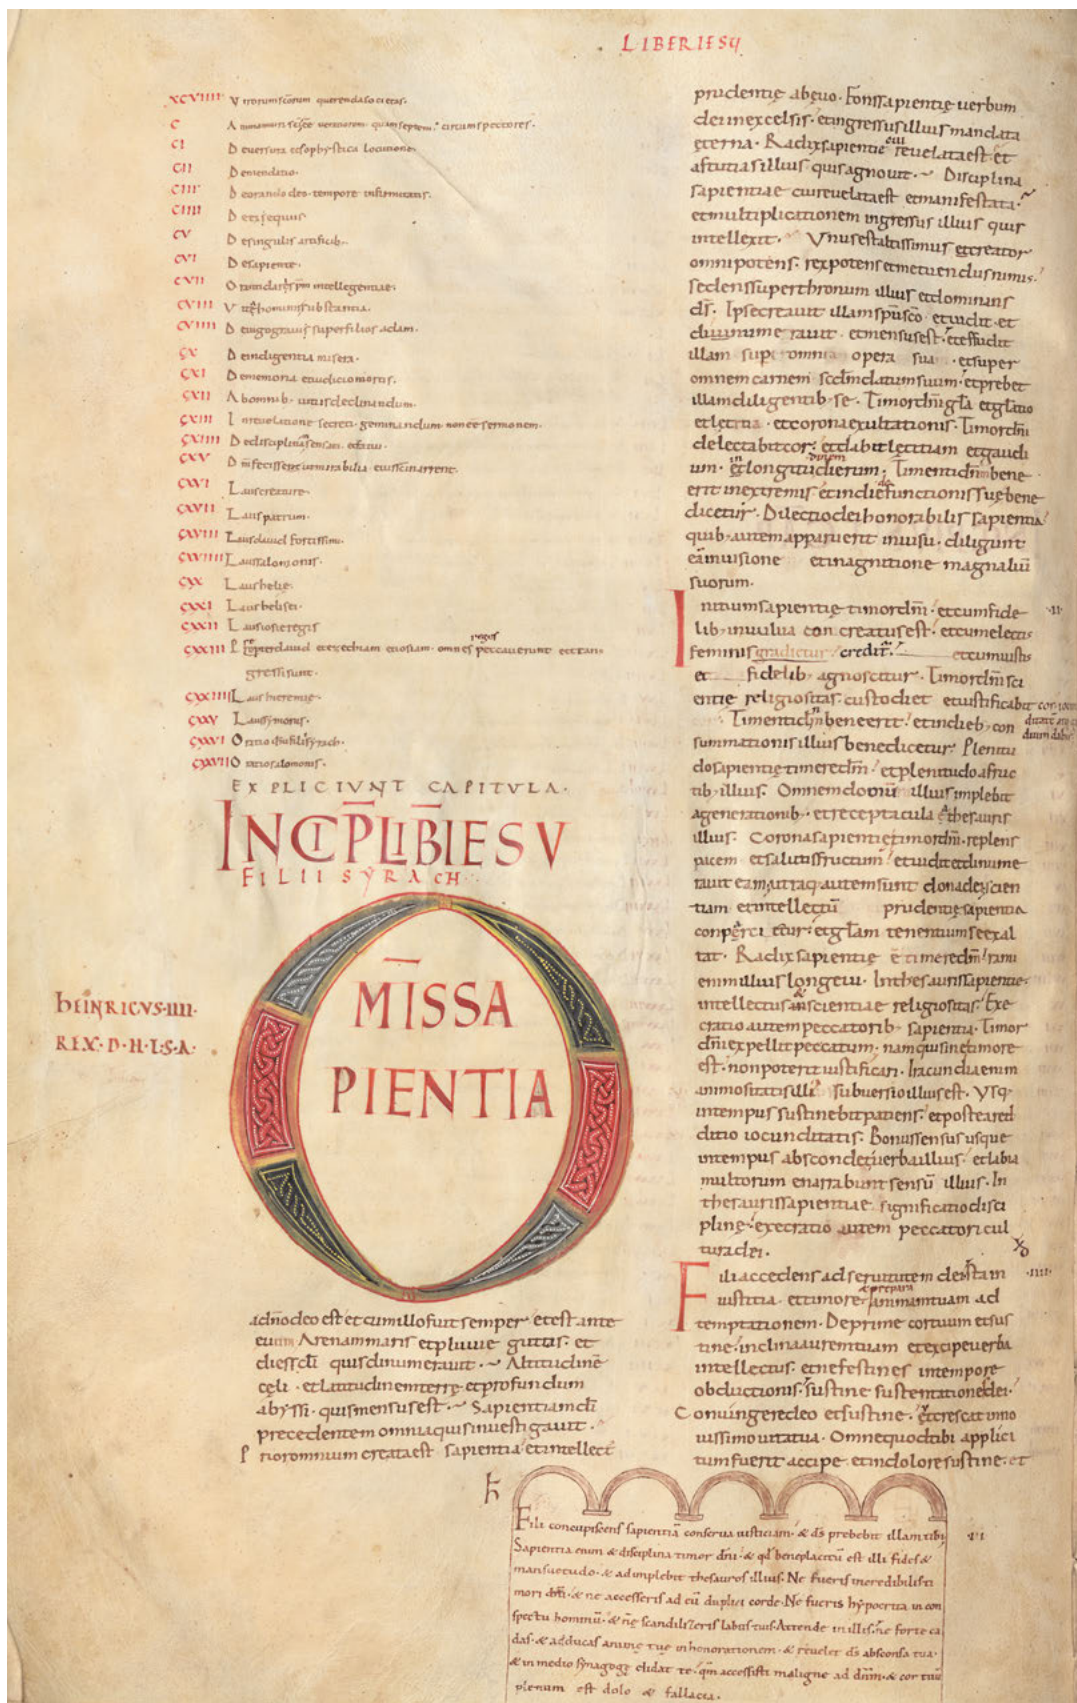 LIBER IESV
XCVIIII Virorum scorum querenda societas.
C
CI De versuta et sophystica locutione.
CII De mendatio.
CIII De orando deo tempore infirmitatis.
CIIII
CV De singulis artificib.
CVI De sapiente.
CVII
CVIII substantia.
CVIIII super filios adam.
CX De indigentia misera.
CXI De memoria et iudicio mortis.
CXII Ab omnib uitiis declinandum.
CXIII In reuelatione secreti geminandum non ee sermonem.
CXIIII De disciplina
CXV Dm fecisse et mirabilia eius enarrent.
CXVI Laus creature.
CXVII Laus patrum.
CXVIII Laus dauid fortissimi.
CXVIIII Laus salomonis.
CXX Laus helie.
CXXI Laus helisei.
CXXII Laus iosie regis
CXXIII dauid et ezechiam et iosiam omnes reges peccauerunt et trans
gressi sunt.
CXXIIII Laus hieremie.
CXXV Laus symonis.
CXXVI Oratio ihu filii syrach.
CXXVII Oratio salomonis.
EXPLICIUNT CAPITVLA.
INCIP LIB IESV
FILII SYRACH
OMIS SA
PIENTIA
HEINRICVS IIII
REX D H L S A
a dno deo est et cum illo fuit semper et est ante
euum Arenam maris et pluuie guttas et
dies scli quis dinumerauit. Altitudine
celi et latitudinem terre et profundum
abyssi quis mensus est. Sapientiam di
precedentem omnia quis inuestigauit.
Prior omnium creata est sapientia et intellect
prudentie ab euo. Fons sapientie uerbum
dei in excelsis et ingressus illius mandata
eterna. Radix sapientie cui reuelata est et
astutias illius quis agnouit. Disciplina
sapientiae cui reuelata est et manifestata
et multiplicationem ingressus illius quis
intellexit. Unus est altissimus et creator
omnipotens. rex potens et metuendus nimis
sedens super thronum illius et dominans
ds. Ipse creauit illam spu sco et uidit et
dinumerauit et mensus est. et effudit
illam sup omnia opera sua et super
omnem carnem scdm datum suum et prebet
illam diligentib se. Timor dni gla et glatio
et letitia et corona exultationis. Timor dni
delectabit cor et dabit letitiam et gaudi
um et in longitudinem dierum. Timenti dnm bene
erit in extremis et in die defunctionis sue bene
dicetur. Dilectio dei honorabilis sapientia
quib autem apparuerit in uisu diligunt
eam in uisione et in agnitione magnaliu
suorum.
Initium sapientie timor dni et cum fide
lib in uulua con creatus est et cum electis
feminis graditur creditr et cum iustis
et fidelib agnoscitur. Timor dni sci
entie religiositas custodiet et iustificabit cor
Timenti dnm bene erit et in dieb con
summationis illius benedicetur. Plenitu
do sapientie timere dm et plenitudo a fruc
tib illius. Omnem domu illius implebit
a generationib et receptacula a thesauris
illius. Corona sapientie timor dni replens
pacem et salutis fructum et uidit et dinume
rauit eam utraq autem sunt dona dei scien
tiam et intellectu prudentie sapientia
conpartietur et glam tenentium se exal
tat. Radix sapientie e timere dm rami
enim illius longeui. In thesauris sapientie
intellectus et scientiae religiositas. Exe
cratio autem peccatorib sapientia. Timor
dni expellit peccatum nam qui sine timore
est non poterit iustificari. Iracundia enim
animositatis illi subuersio illius est. Usq
in tempus sustinebit patiens et postea red
ditio iocunditatis. Bonus sensus usque
in tempus abscondet uerba illius et labia
multorum enarrabunt sensu illius. In
thesauris sapientiae significatio disci
pline execratio autem peccatori cul
tura dei.
Fili accedens ad seruitutem dei sta in
iustitia et timore et prepara animam tuam ad
temptationem. Deprime cor tuum et sus
tine inclina aurem tuam et excipe uerba
intellectus et ne festines in tempore
obductionis. Sustine sustentatione dei.
Coniungere deo et sustine et crescat in no
uissimo uita tua. Omne quod tibi applici
tum fuerit accipe et in dolore sustine et
Fili concupiscens sapientia conserua iusticiam & ds prebebit illam tibi
Sapientia enim & disciplina timor dni & qd beneplacitu est illi fides &
mansuetudo & adimplebit thesauros illius. Ne fueris incredibilis ti
mori dni & ne accesseris ad eu duplici corde. Ne fueris hypocrita in con
spectu hominu & ne scandilizeris labiis tuis. Attende in illis ne forte ca
das & adducas anime tue inhonorationem & reuelet ds absconsa tua
& in medio synagoge elidat te qm accessisti maligne ad dnm & cor tuu
plenum est dolo & fallacia.